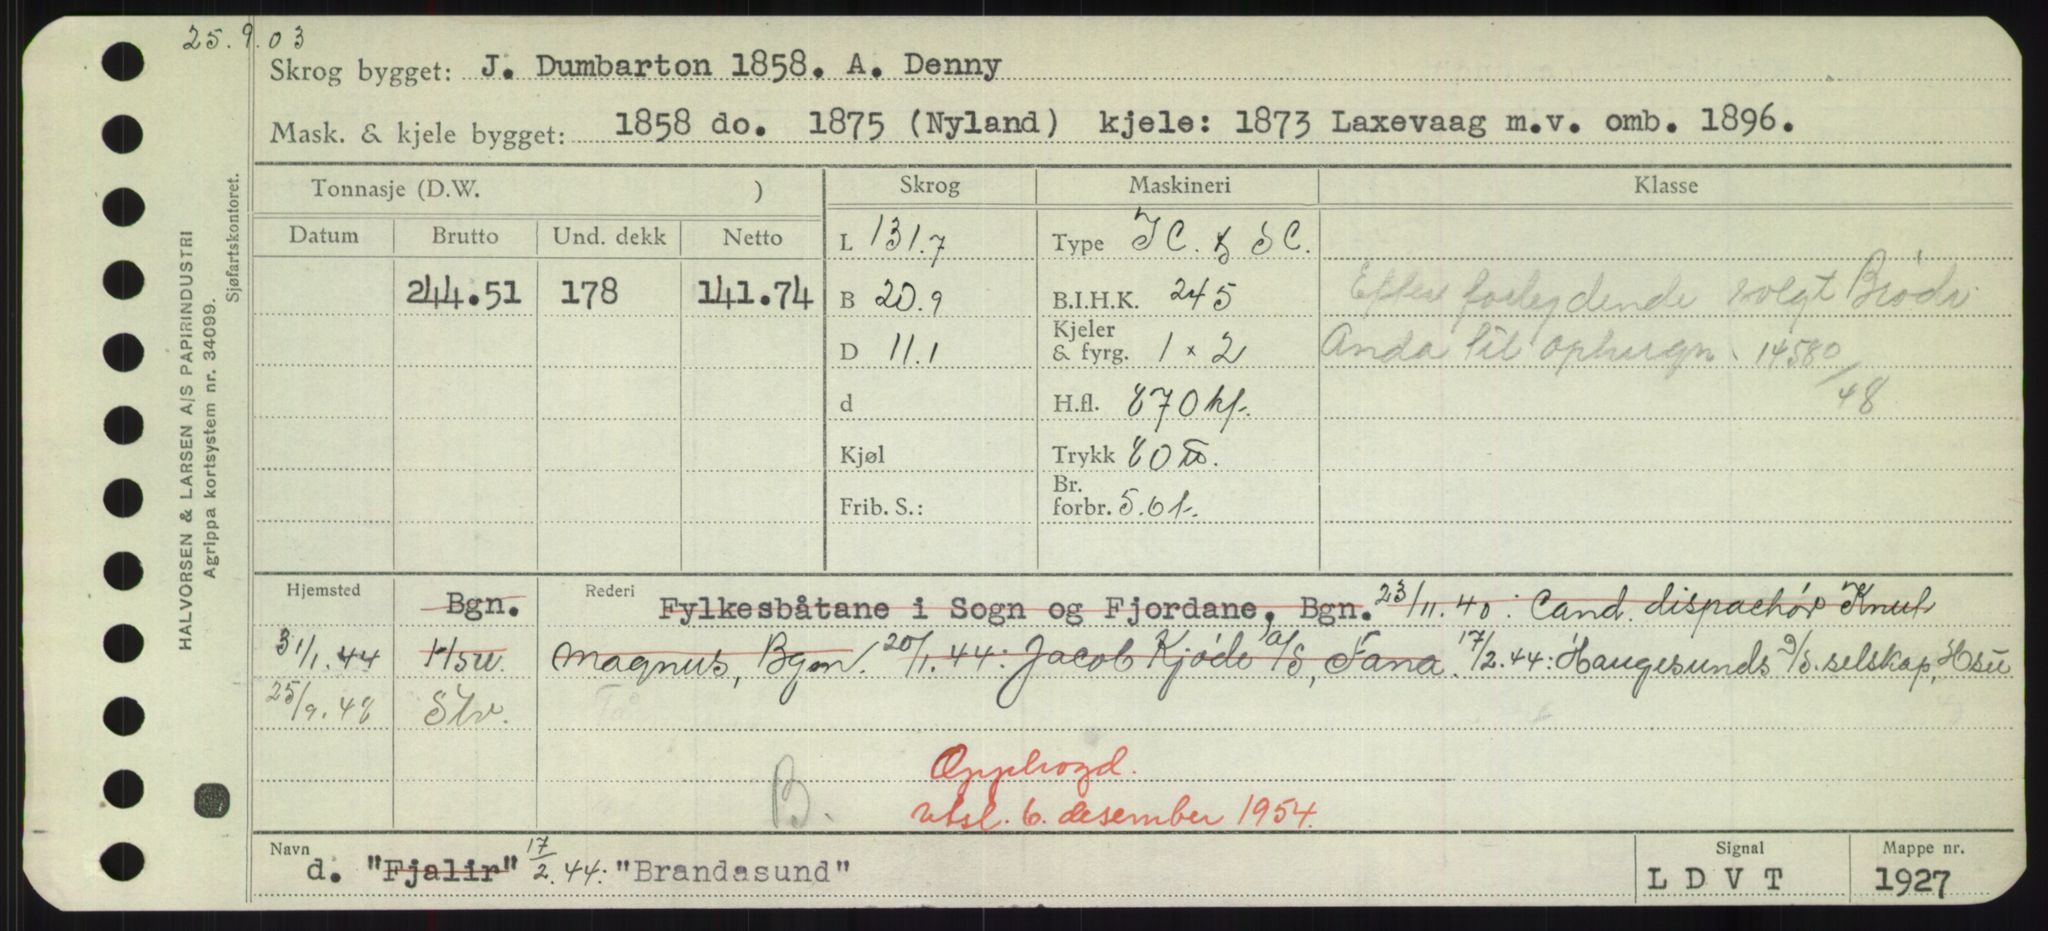 25.9.03
Skrog bygget: J. Dumbarton 1858. A. Denny
Mask. & kjele bygget: 1858 do. 1875 (Nyland) kjele: 1873 Laxevaag m.v. omb. 1896.
HALVORSEN & LARSEN A/S PAPIRINDUSTRI
Agrippa kortsystem nr. 34099.
Sjøfartskontoret.
Tonnasje (D.W. ) Skrog Maskineri Klasse
Datum Brutto Und. dekk Netto L 131.7 Type J C. & S C.
244.51 178 141.74 B 20.9 B.I.H.K. 245 Efter forlydende solgt Brødr.
D 11.1 Kjeler & fyrg. 1 x 2 Anda til ophugn. 14580/48
d H.fl. 870 kf.
Kjøl Trykk 80 lb.
Frib. S.: Br. forbr. 5.0 t.
Hjemsted Bgn. Rederi Fylkesbåtane i Sogn og Fjordane, Bgn. 23/11.40: Cand. dispachør Knut
31/1.44 Hsu. Magnus, Bgn. 20/1.44: Jacob Kjøde A/S, Fana. 17/2.44: Haugesunds D/S. selskap, Hsu
25/9.48 Stv.
Opphogd.
B. utsl. 6. desember 1954.
Navn d. "Fjalir" 17/2.44: "Brandasund" Signal L D V T Mappe nr. 1927